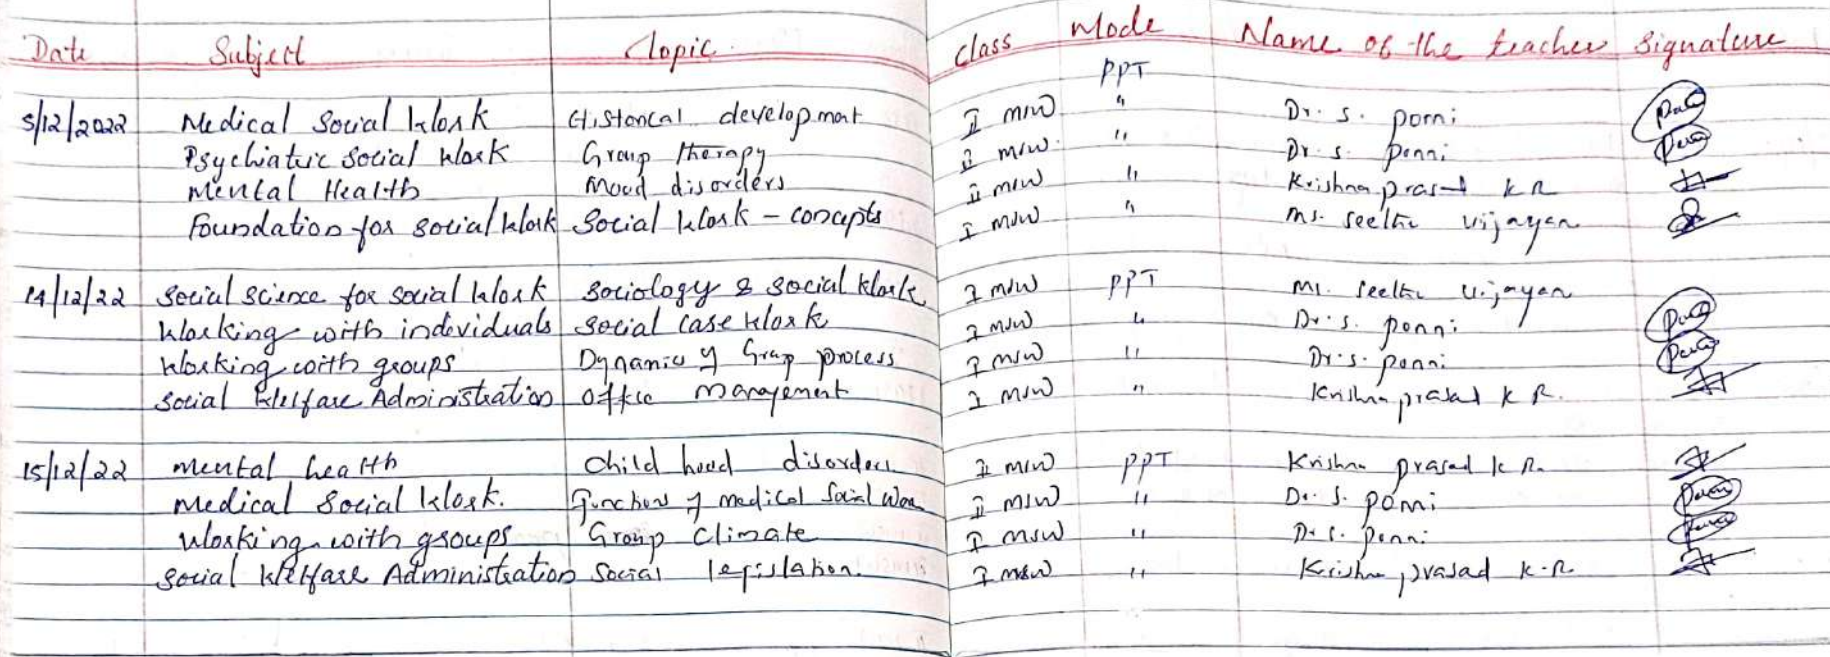 Date Subject Topic. Class Mode Name of the teacher Signature
PPT
5/12/2022 Medical Social Work Historical development II MSW " Dr. S. Ponni
Psychiatric Social Work Group therapy II MSW. " Dr. S. Ponni
Mental Health Mood disorders II MSW " Krishna prasad K R
Foundation for Social Work Social Work - concepts I MSW " Ms. Seethu Vijayan
14/12/22 Social Science for Social Work Sociology & Social Work I MSW PPT Ms. Seethu Vijayan
Working with individuals Social Case Work I MSW " Dr. S. Ponni
Working with groups Dynamics of Group process I MSW " Dr. S. Ponni
Social Welfare Administration Office Management I MSW " Krishna prasad K R.
15/12/22 Mental health Child hood disorders II MSW PPT Krishna prasad K R.
Medical Social Work. Functions of Medical Social Work II MSW " Dr. S. Ponni
Working with groups Group Climate I MSW " Dr. S. Ponni
Social Welfare Administration Social legislation. I MSW " Krishna prasad K.R.